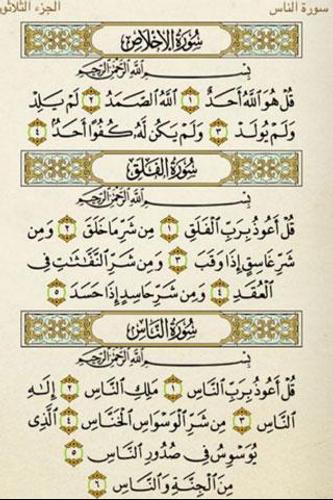 سورة الناس الجزء الثلاثون
سُورَةُ الإِخْلَاصِ
بِسْمِ اللَّهِ الرَّحْمَٰنِ الرَّحِيمِ
قُلْ هُوَ اللَّهُ أَحَدٌ ١ اللَّهُ الصَّمَدُ ٢ لَمْ يَلِدْ
وَلَمْ يُولَدْ ٣ وَلَمْ يَكُن لَّهُ كُفُوًا أَحَدٌ ٤
سُورَةُ الفَلَقِ
بِسْمِ اللَّهِ الرَّحْمَٰنِ الرَّحِيمِ
قُلْ أَعُوذُ بِرَبِّ الْفَلَقِ ١ مِن شَرِّ مَا خَلَقَ ٢ وَمِن
شَرِّ غَاسِقٍ إِذَا وَقَبَ ٣ وَمِن شَرِّ النَّفَّاثَاتِ فِي
الْعُقَدِ ٤ وَمِن شَرِّ حَاسِدٍ إِذَا حَسَدَ ٥
سُورَةُ النَّاسِ
بِسْمِ اللَّهِ الرَّحْمَٰنِ الرَّحِيمِ
قُلْ أَعُوذُ بِرَبِّ النَّاسِ ١ مَلِكِ النَّاسِ ٢ إِلَٰهِ
النَّاسِ ٣ مِن شَرِّ الْوَسْوَاسِ الْخَنَّاسِ ٤ الَّذِي
يُوَسْوِسُ فِي صُدُورِ النَّاسِ ٥
مِنَ الْجِنَّةِ وَالنَّاسِ ٦